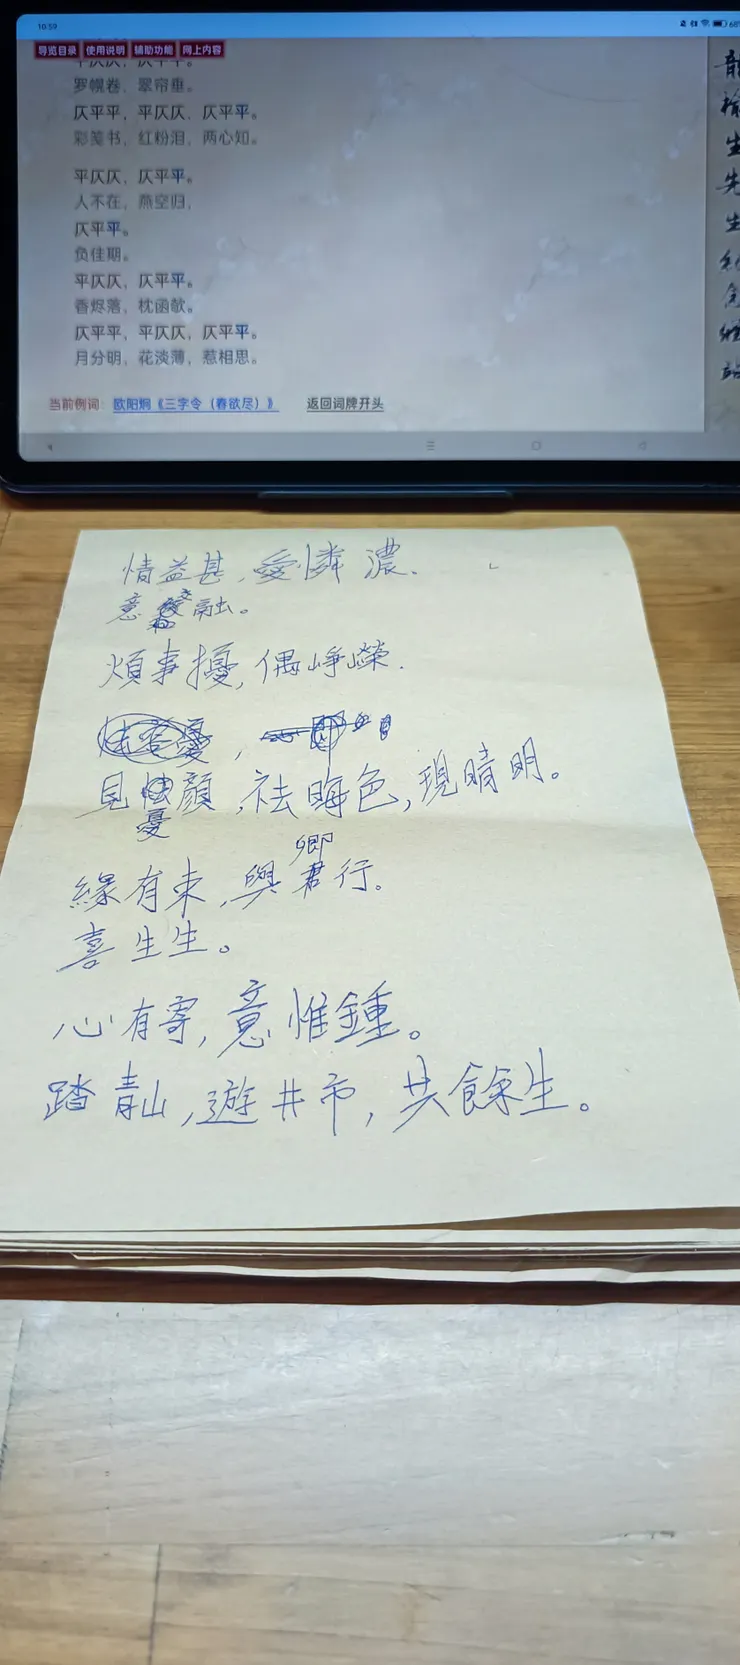 10:59
导览目录 使用说明 辅助功能 网上内容
平仄仄，仄平平。
罗幌卷，翠帘垂。
仄平平，平仄仄，仄平平。
彩笺书，红粉泪，两心知。
平仄仄，仄平平。
人不在，燕空归，
仄平平。
负佳期。
平仄仄，仄平平。
香烬落，枕函欹。
仄平平，平仄仄，仄平平。
月分明，花淡薄，惹相思。
当前例词 欧阳炯《三字令（春欲尽）》 返回词牌开头
龍
榆
生
先
生
情益甚，愛憐濃.
意交融。
煩事擾，偶崢嶸.
見憂顏，祛晦色，現晴明。
卿
緣有束，與君行。
喜生生。
心有寄，意惟鍾。
踏青山，遊井市，共餘生。